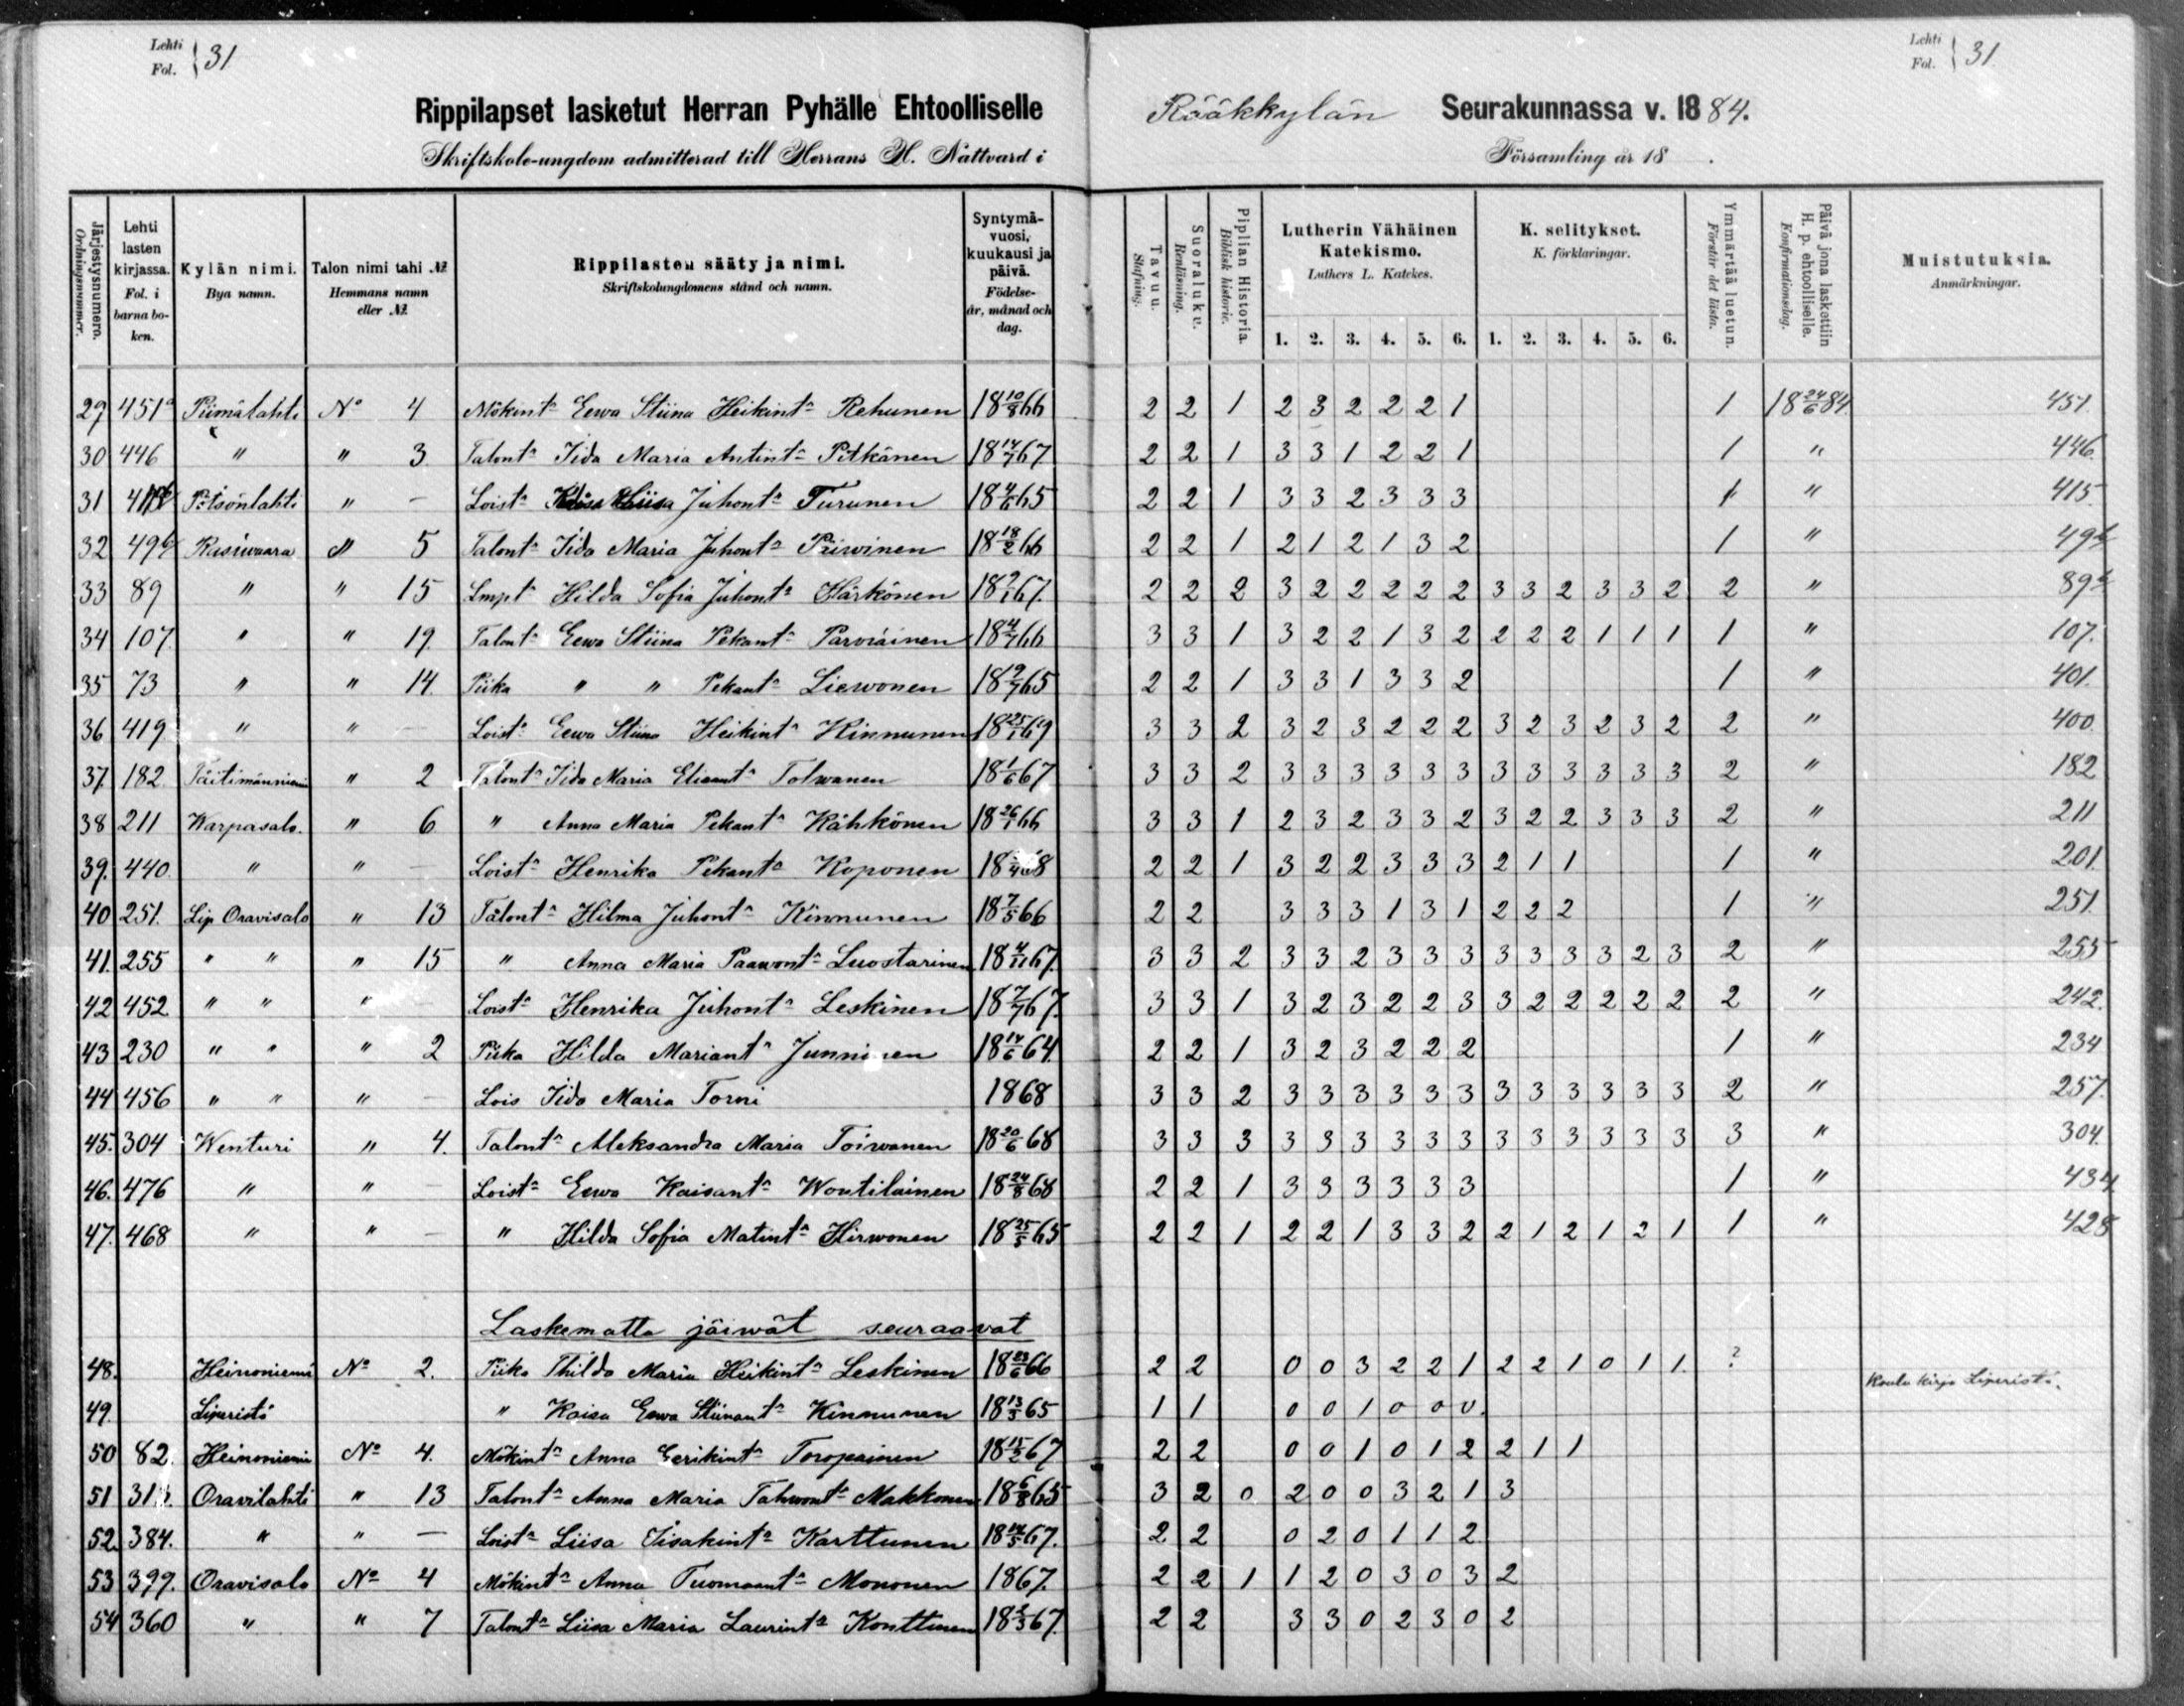 Lehti Fol. } 31
Lehti Fol. } 31
Rippilapset lasketut Herran Pyhälle Ehtoolliselle Rääkkylän Seurakunnassa v. 1884.
Skriftskole-ungdom admitterad till Herrans H. Nattvard i Församling år 18 .
Järjestysnumero. Ordningsnummer. | Lehti lasten kirjassa. Fol. i barnaboken. | Kylän nimi. Bya namn. | Talon nimi tahi №. Hemmans namn eller №. | Rippilasten sääty ja nimi. Skriftskolungdomens stånd och namn. | Syntymävuosi, kuukausi ja päivä. Födelse-år, månad och dag. | Tavuu. Stafning. | Suoraluku. Renläsning. | Piplian Historia. Biblisk historie. | Lutherin Vähäinen Katekismo. Luthers L. Katekes. | K. selitykset. K. förklaringar. | Ymmärtää luetun. Förstår det lästa. | Päivä jona laskettiin H. p. ehtoolliselle. Konfirmationsdag. | Muistutuksia. Anmärkningar.
1. 2. 3. 4. 5. 6. 1. 2. 3. 4. 5. 6.
29 451a Piimälahti No 4 Mökint:a Eewa Stiina Heikint:a Rehunen 18 10/8 66 2 2 1 2 3 2 2 2 1 1 18 24/6 84 451
30 446 " " 3 Talont:a Iida Maria Antint:a Pitkänen 18 14/7 67 2 2 1 3 3 1 2 2 1 1 " 446
31 Pötsönlahti " — Loist:a Juhont:a Turunen 18 4/6 65 2 2 1 3 3 2 3 3 3 1 " 415
32 49 Rasiwaara " 5 Talont:a Iida Maria Juhont:a Päiwinen 18 18/2 66 2 2 1 2 1 2 1 3 2 1 " 49
33 89 " " 15 Smpt:a Hilda Sofia Juhont:a Härkönen 18 9/1 67. 2 2 2 3 2 2 2 2 2 3 3 2 3 3 2 2 " 89
34 107. " " 19. Talont:a Eewa Stiina Pekant:a Parviainen 18 4/7 66 3 3 1 3 2 2 1 3 2 2 2 2 1 1 1 1 " 107.
35 73 " " 14 Piika " " Pekant:a Liewonen 18 9/7 65 2 2 1 3 3 1 3 3 2 1 " 401.
36 419 " " — Loist:a Eewa Stiina Heikint:a Hinnunen 18 25/1 69 3 3 2 3 2 3 2 2 2 3 2 3 2 3 2 2 " 400
37. 182 Täitimänniemi " 2 Talont:a Iida Maria Eliaant:a Tolwanen 18 1/6 67 3 3 2 3 3 3 3 3 3 3 3 3 3 3 3 2 " 182
38 211 Warpasalo. " 6 " Anna Maria Pekant:a Kähkönen 18 26/1 66 3 3 1 2 3 2 3 3 2 3 2 2 3 3 3 2 " 211
39. 440 " " — Loist:a Henrika Pekant:a Koponen 2 2 1 3 2 2 3 3 3 2 1 1 1 " 201.
40 251. Lip Oravisalo " 13 Talont:a Hilma Juhont:a Kinnunen 18 7/5 66 2 2 3 3 3 1 3 1 2 2 2 1 " 251
41. 255 " " " 15 " Anna Maria Paawont:a Luostarinen 18 4/11 67. 3 3 2 3 3 2 3 3 3 3 3 3 3 2 3 2 " 255
42 452 " " " — Loist:a Henrika Juhont:a Leskinen 18 7/7 67. 3 3 1 3 2 3 2 2 3 3 2 2 2 2 2 2 " 242.
43 230 " " " 2 Piika Hilda Mariant:a Junninen 18 14/6 64. 2 2 1 3 2 3 2 2 2 1 " 234
44 456 " " " — Lois Iida Maria Torni 1868 3 3 2 3 3 3 3 3 3 3 3 3 3 3 3 2 " 257.
45. 304 Wenturi " 4. Talont:a Aleksandra Maria Toiwanen 18 20/6 68 3 3 3 3 3 3 3 3 3 3 3 3 3 3 3 3 " 304.
46. 476 " " — Loist:a Eewa Kaisant:a Woutilainen 18 24/8 68 2 2 1 3 3 3 3 3 3 1 " 434
47. 468 " " — " Hilda Sofia Matint:a Hirwonen 18 25/5 65 2 2 1 2 2 1 3 3 2 2 1 2 1 2 1 1 " 428
Laskematta jäiwät seuraavat
48. Heinoniemi No 2. Piika Thilda Maria Heikint:a Leskinen 18 23/6 66 2 2 0 0 3 2 2 1 2 2 1 0 1 1. ?
Koulu kirja Liperistä.
49. Liperistä " Kaisa Eewa Stiinant:a Kinnunen 18 13/5 65 1 1 0 0 1 0 0 0.
50 82. Heinoniemi No 4. Mökint:a Anna Eerikint:a Toropainen 18 15/2 67 2 2 0 0 1 0 1 2 2 1 1
51 Oravilahti " 13 Talont:a Anna Maria Tahwont:a Makkonen 18 6/8 65 3 2 0 2 0 0 3 2 1 3
52. 384. " " — Loist:a Liisa Iisakint:a Karttunen 67. 2 2 0 2 0 1 1 2
53 399. Oravisalo No 4 Mökint:a Anna Tuomaant:a Mononen 1867. 2 2 1 1 2 0 3 0 3 2
54 360 " " 7 Talont:a Liisa Maria Laurint:a Konttinen 67. 2 2 3 3 0 2 3 0 2